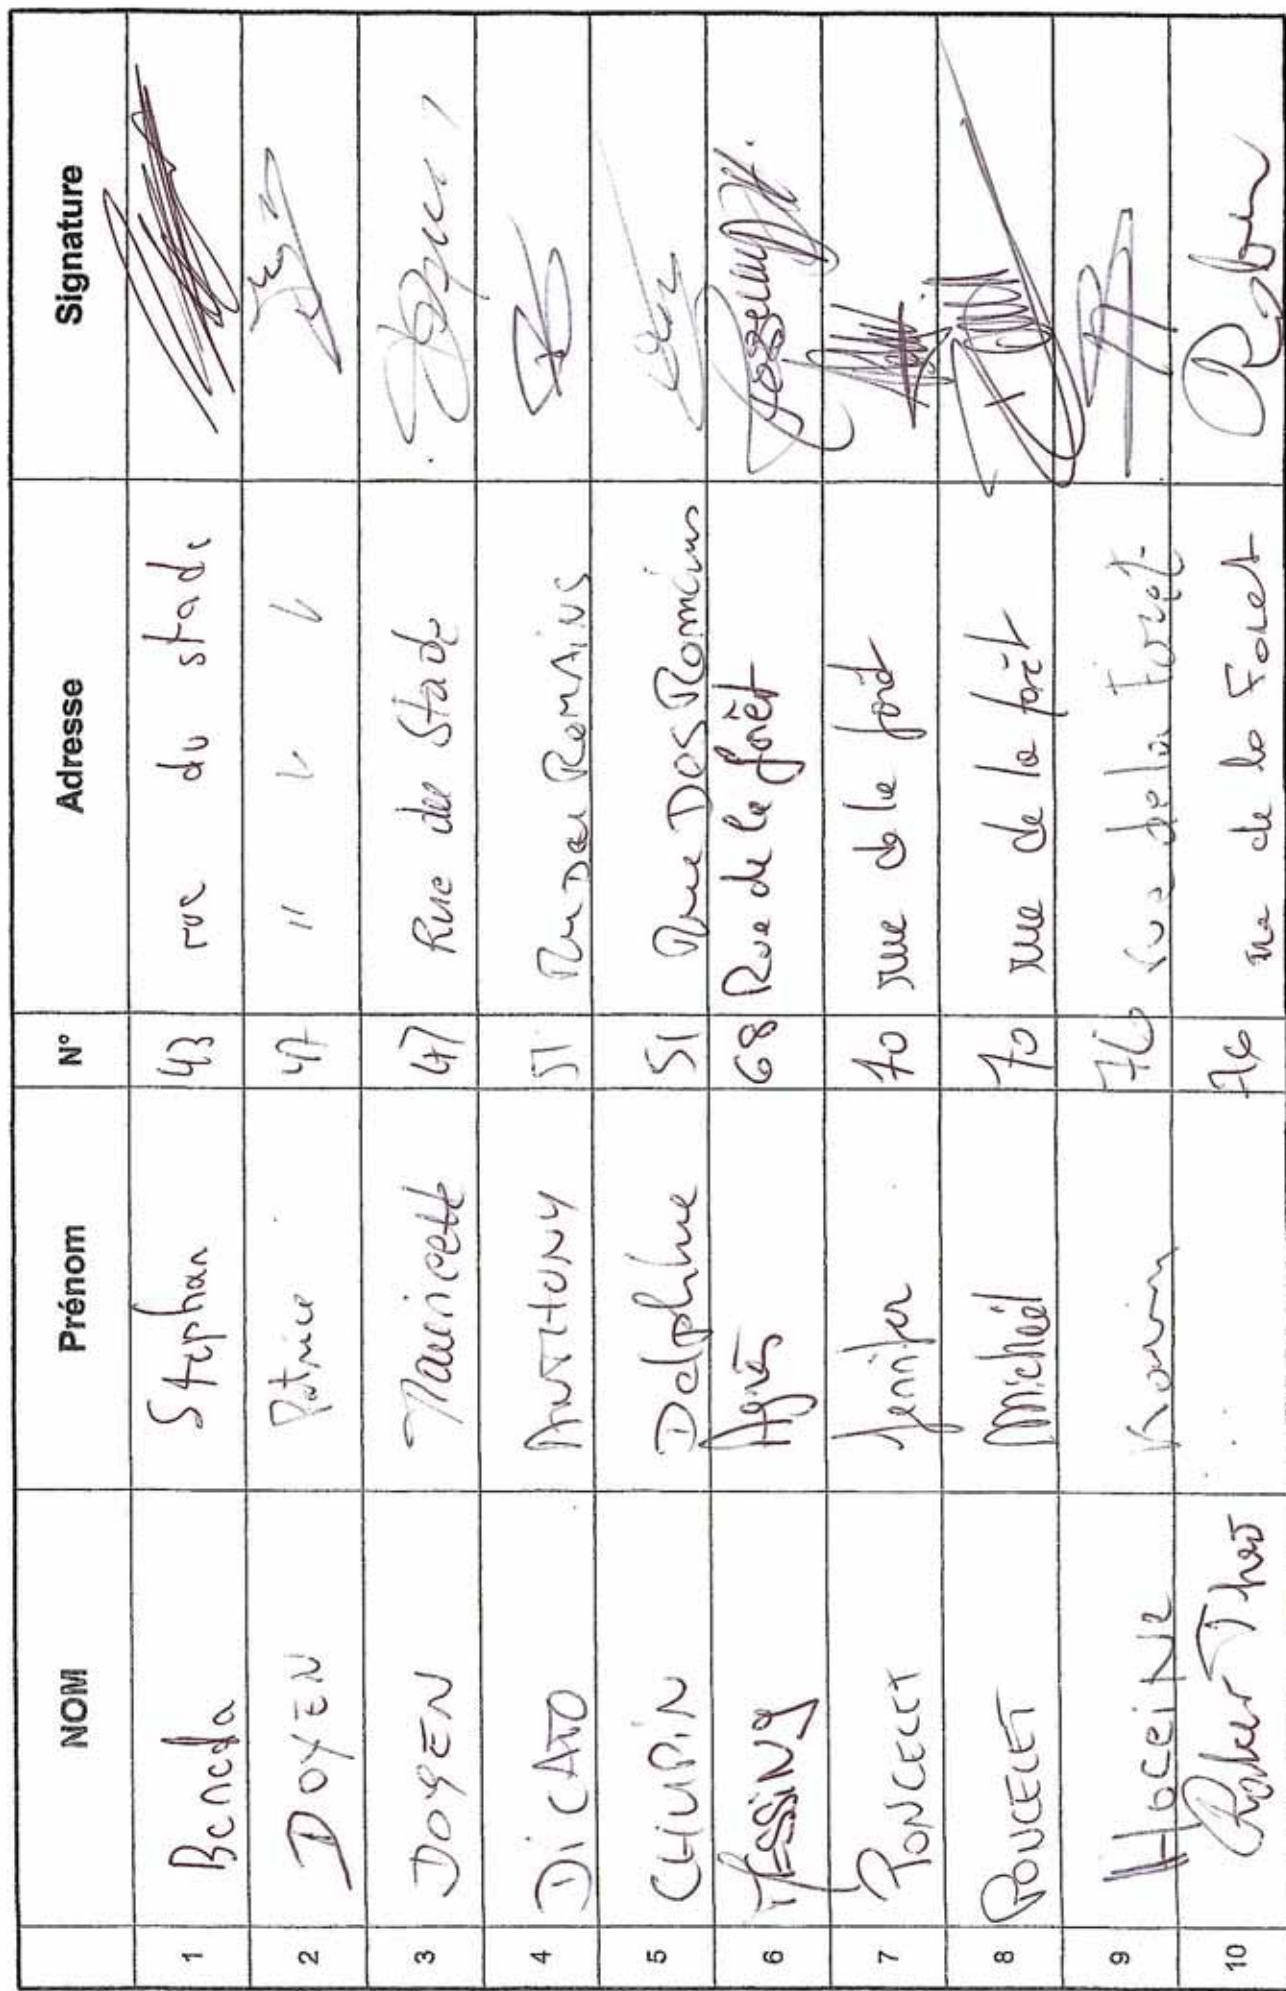 NOM Prénom N° Adresse Signature
1 Benda Stephan 43 rue du stade
2 DOYEN Patrice 47 " " "
3 DOYEN Mauricette 47 Rue du Stade
4 Di CATO ANTHONY 51 Rue Des ROMAINS
5 CHUPIN Delphine 51 Rue DES Romains
6 MESSING Agnès 68 Rue de la forêt
7 PONCELET Jennifer 70 rue de la forêt
8 PONCELET Michaël 70 rue de la forêt
9 HOCEINE 76 rue de la Foret
10 Théo 76 rue de la Foret